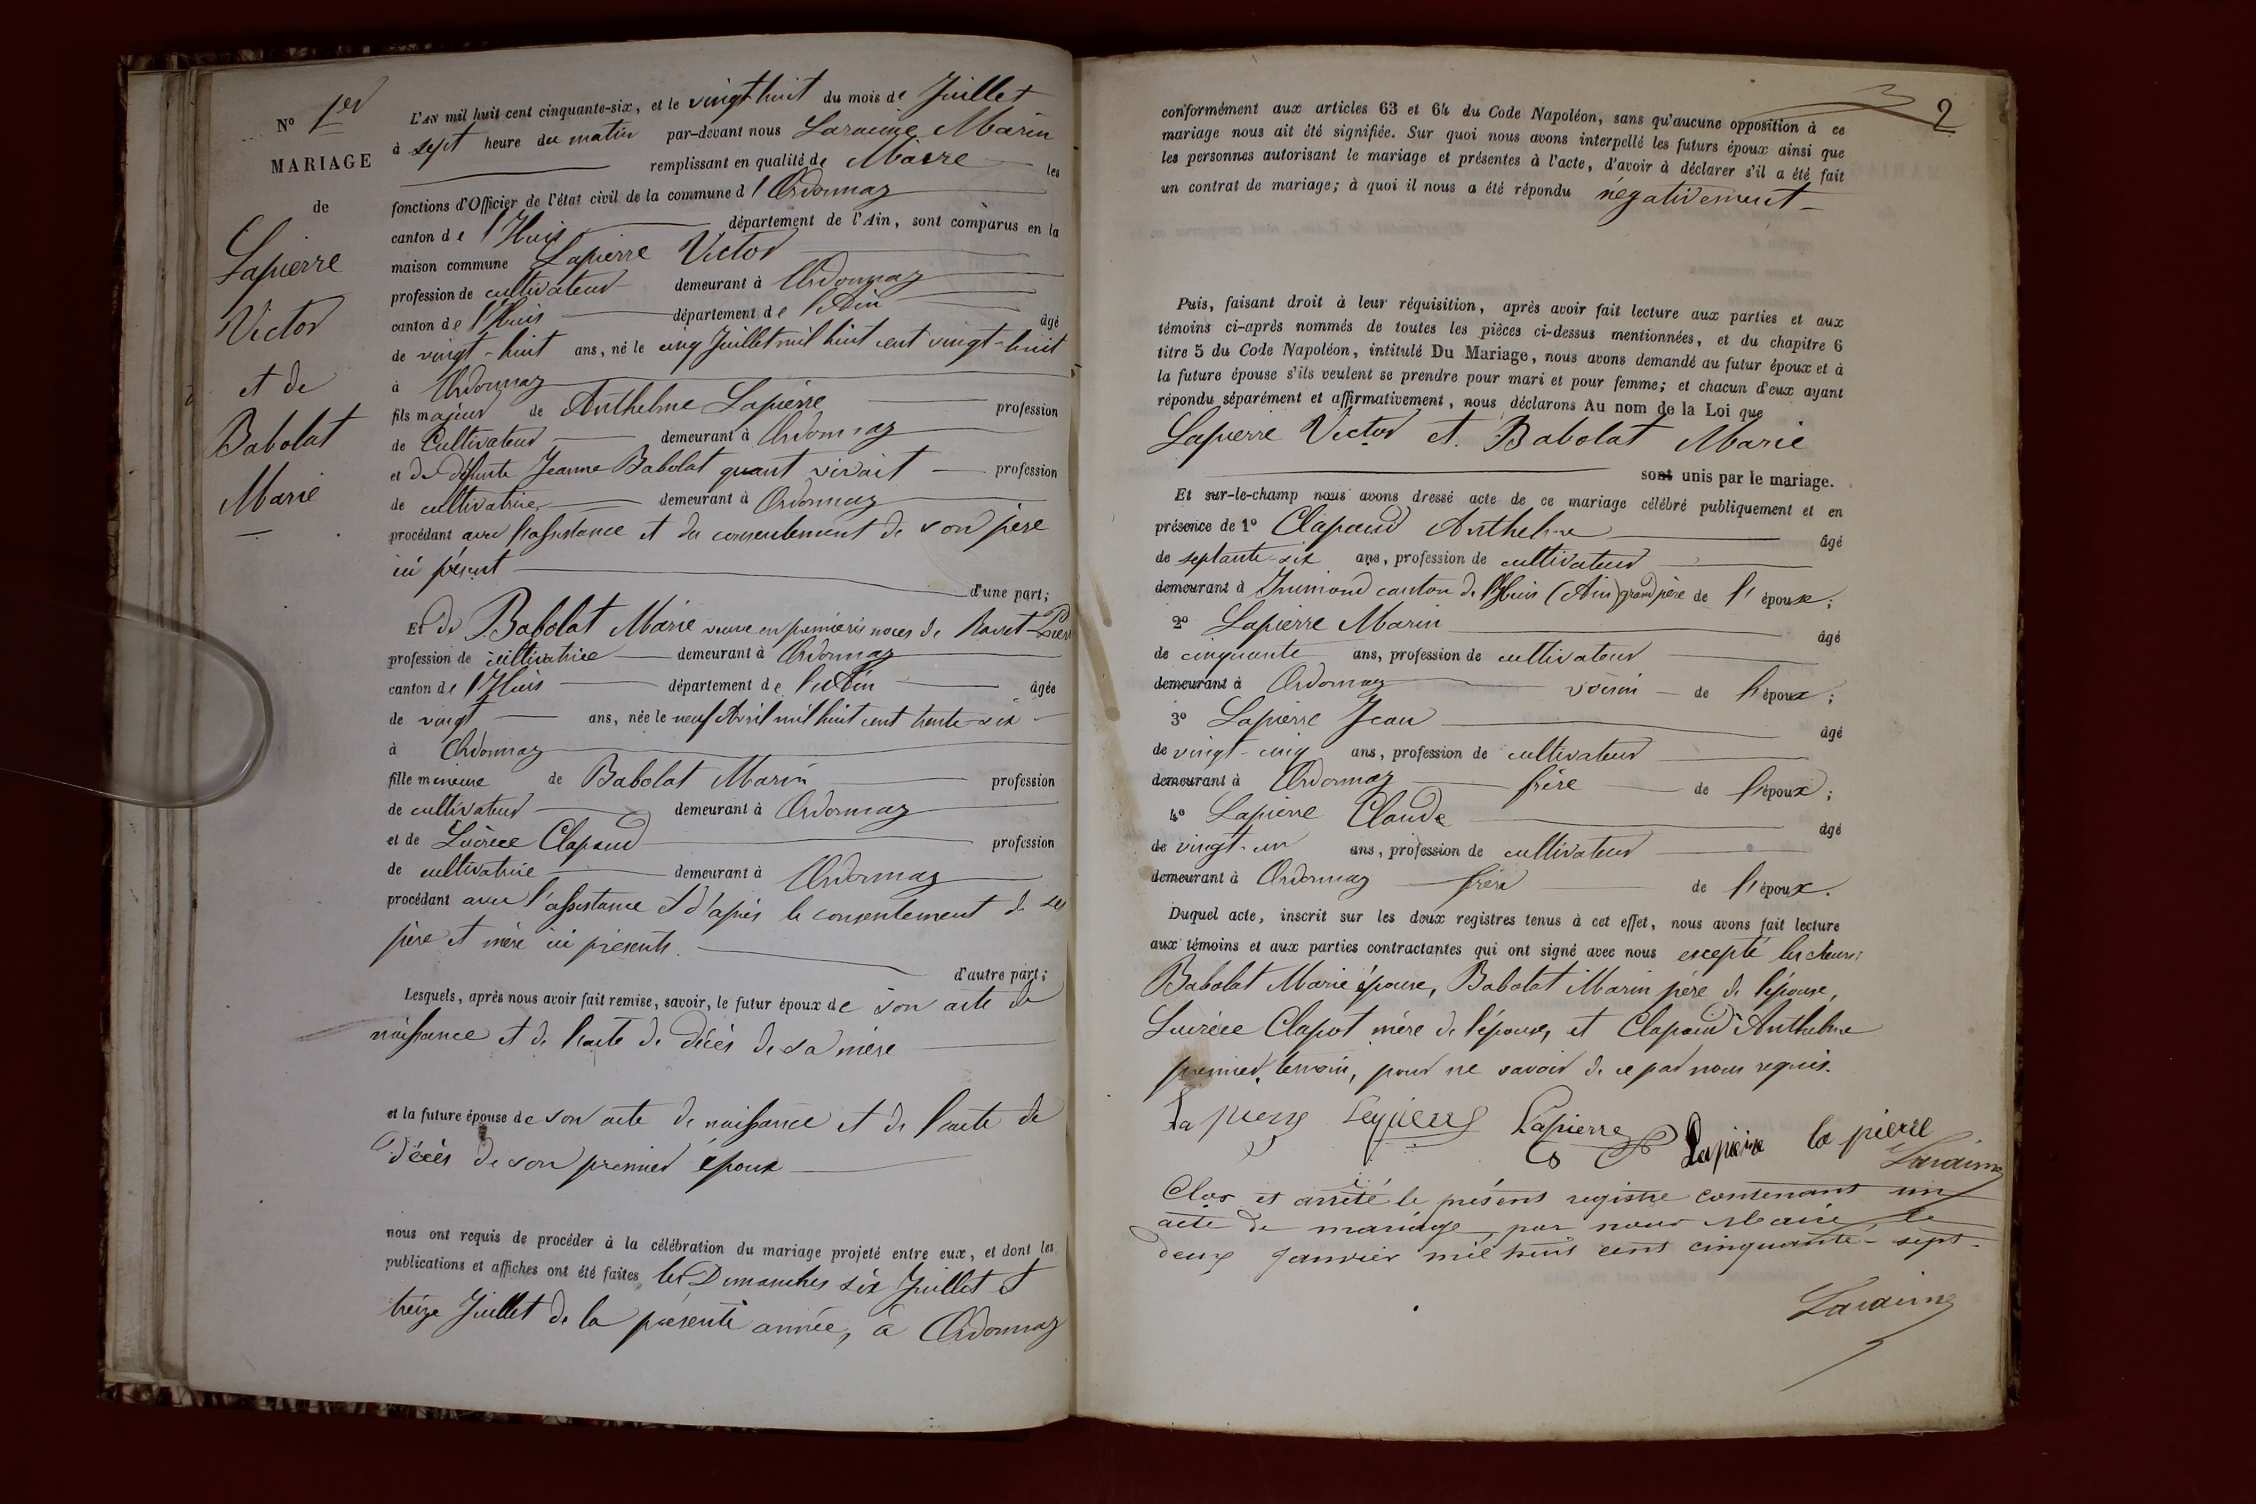 N° 1er
MARIAGE
de
Lapierre
Victor
et de
Babolat
Marie
L'AN mil huit cent cinquante-six, et le vingt huit du mois de Juillet
à sept heure du matin par-devant nous Marin
remplissant en qualité de Maire les
fonctions d'Officier de l'état civil de la commune d'Ordonnaz
canton de l'Huis département de l'Ain, sont comparus en la
maison commune Lapierre Victor
profession de cultivateur demeurant à Ordonnaz
canton de l'Huis département de l'Ain âgé
de vingt-huit ans, né le cinq Juillet mil huit cent vingt-huit
à Ordonnaz
fils majeur de Anthelme Lapierre profession
de Cultivateur demeurant à Ordonnaz
et de défunte Jeanne Babolat quant vivait profession
de cultivatrice demeurant à Ordonnaz
procédant avec l'assistance et du consentement de son père
ici présent
d'une part;
Et de Babolat Marie veuve en premières noces de
profession de cultivatrice demeurant à Ordonnaz
canton de l'Huis département de l'Ain âgée
de vingt ans, née le neuf Avril mil huit cent trente-six
à Ordonnaz
fille mineure de Babolat Marin profession
de cultivateur demeurant à Ordonnaz
et de Lucrèce Clapaud profession
de cultivatrice demeurant à Ordonnaz
procédant avec l'assistance et d'après le consentement de ses
père et mère ici présents.
d'autre part;
Lesquels, après nous avoir fait remise, savoir, le futur époux de son acte de
naissance et de l'acte de décès de sa mère
et la future épouse de son acte de naissance et de l'acte de
décès de son premier époux
nous ont requis de procéder à la célébration du mariage projeté entre eux, et dont les
publications et affiches ont été faites les Dimanches six Juillet et
treize Juillet de la présente année, à Ordonnaz
2
conformément aux articles 63 et 64 du Code Napoléon, sans qu'aucune opposition à ce
mariage nous ait été signifiée. Sur quoi nous avons interpellé les futurs époux ainsi que
les personnes autorisant le mariage et présentes à l'acte, d'avoir à déclarer s'il a été fait
un contrat de mariage; à quoi il nous a été répondu négativement
Puis, faisant droit à leur réquisition, après avoir fait lecture aux parties et aux
témoins ci-après nommés de toutes les pièces ci-dessus mentionnées, et du chapitre 6
titre 5 du Code Napoléon, intitulé Du Mariage, nous avons demandé au futur époux et à
la future épouse s'ils veulent se prendre pour mari et pour femme; et chacun d'eux ayant
répondu séparément et affirmativement, nous déclarons Au nom de la Loi que
Lapierre Victor et Babolat Marie
sont unis par le mariage.
Et sur-le-champ nous avons dressé acte de ce mariage célébré publiquement et en
présence de 1° Clapaud Anthelme âgé
de septante-six ans, profession de cultivateur
demeurant à canton de l'Huis (Ain) grand père de l'épouse;
2° Lapierre Marin âgé
de cinquante ans, profession de cultivateur
demeurant à Ordonnaz voisin de l'époux;
3° Lapierre Jean âgé
de vingt-cinq ans, profession de cultivateur
demeurant à Ordonnaz frère de l'époux;
4° Lapierre Claude âgé
de vingt-un ans, profession de cultivateur
demeurant à Ordonnaz frère de l'époux.
Duquel acte, inscrit sur les deux registres tenus à cet effet, nous avons fait lecture
aux témoins et aux parties contractantes qui ont signé avec nous excepté les
Babolat Marie épouse, Babolat Marin père de l'épouse,
Lucrèce Clapot mère de l'épouse, et Clapaud Anthelme
premier témoin, pour ne savoir de ce par nous requis.
la pierre Lapierre Lapierre Lapierre la pierre
Clos et arrêté le présent registre contenant un
acte de mariage, par nous Maire, le
deux Janvier mil huit cent cinquante-sept.